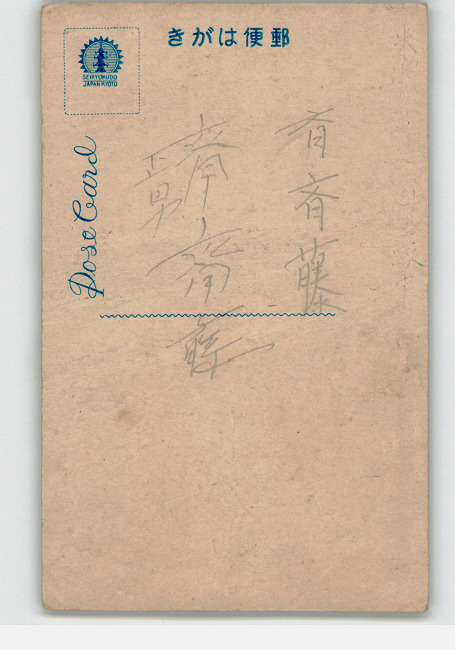 きがは便郵
SEIKYOKUDO
JAPAN KYOTO
Pose Card
斉斉藤
齊斎藤
正男